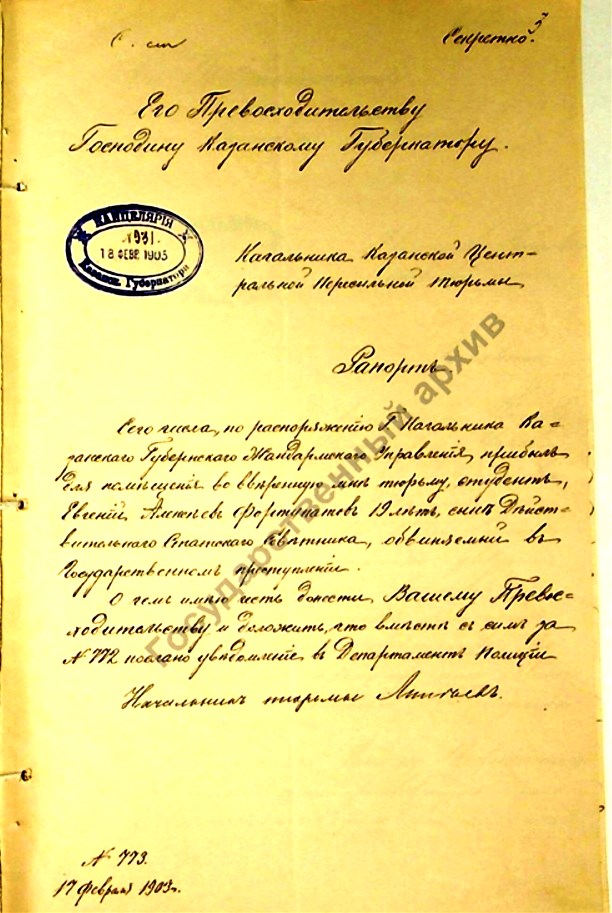 3
Секретно.
Его Превосходительству
Господину Казанскому Губернатору.
КАНЦЕЛЯРІЯ
№931
18 ФЕВР 1903
Казанск. Губернатора
Начальника Казанской Цент-
ральной Пересильной тюрьмы
Рапортъ.
Сего числа, по распоряженію Г. Начальника Ка-
занскаго Губернскаго Жандармскаго Управленія, прибылъ
для помѣщенія во ввѣренную мнѣ тюрьму, студентъ,
Евгеній Алексѣевъ Фортунатовъ 19 лѣтъ, сынъ Дѣйст-
вительнаго Статскаго Совѣтника, обвиняемый въ
Государственномъ преступленіи.
О чемъ имѣю честь донести Вашему Превос-
ходительству и доложить, что вмѣстѣ съ симъ за
№ 772 послано увѣдомленіе въ Департаментъ Полиціи
Начальникъ тюрьмы
№ 773.
17 февраля 1903 г.
Государственный архив